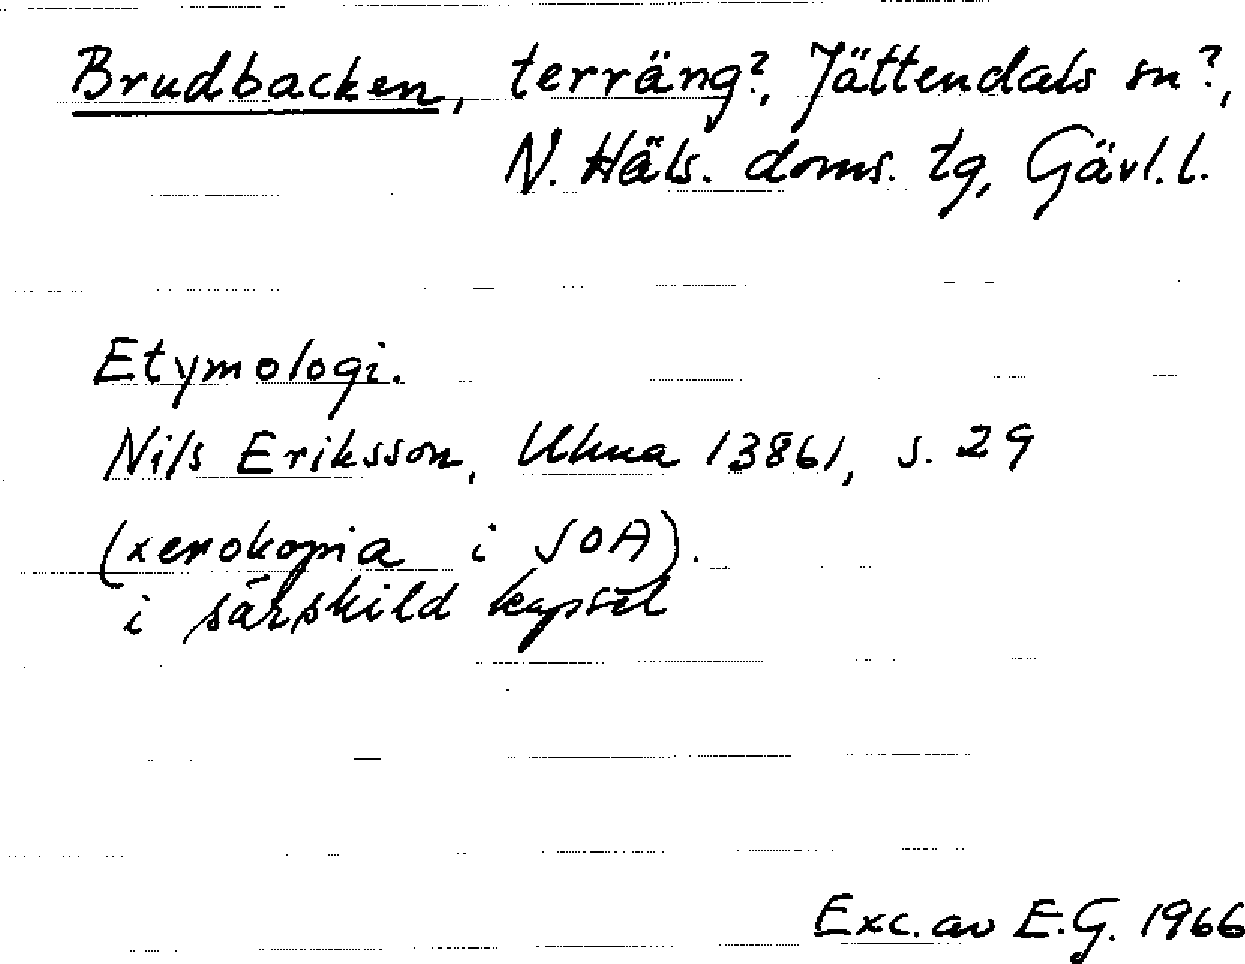 Brudbacken, terräng?, Jättendals sn?,
N. Häls. doms. tg, Gävl. l.
Etymologi.
Nils Eriksson, Ulma 13861, s. 29
(xerokopia i SOA).
i särskild kapsel
Exc. av E.G. 1966